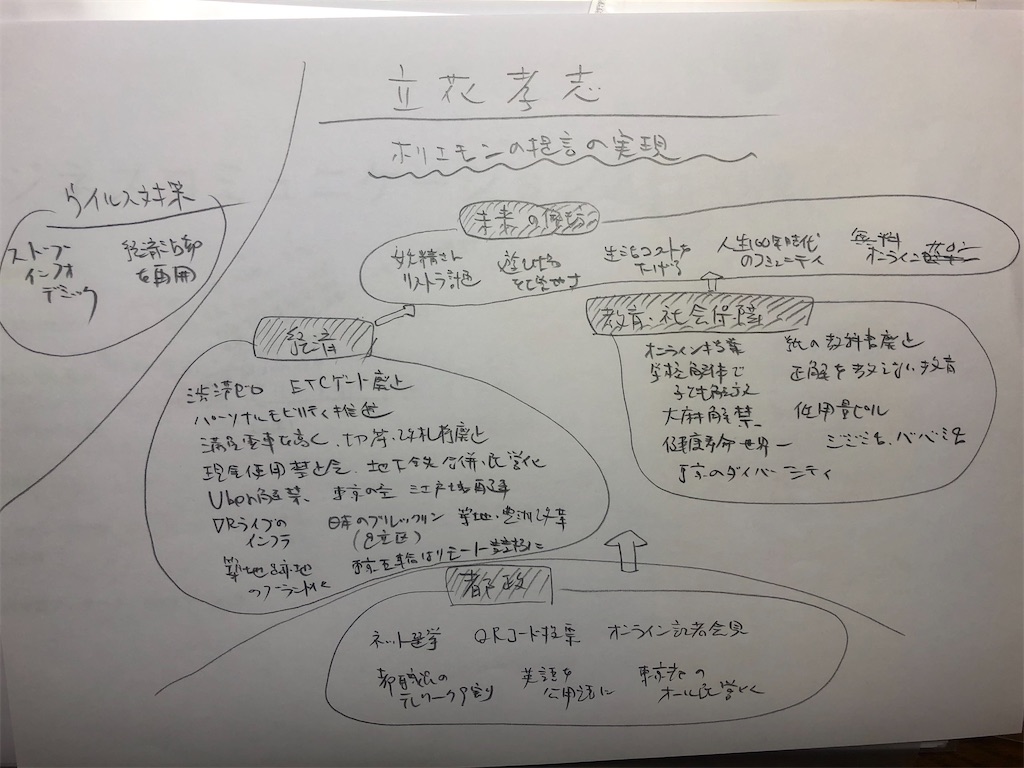 立花孝志
ホリエモンの提言の実現
ウイルス対策
ストップ
インフォ
デミック
経済活動
を再開
未来の
妖精さん
リストラ計画
遊びを
生活コストを
下げる
人生100年時代
のコミュニティ
無料
オンライン
経済
渋滞ゼロ ETCゲート廃止
パーソナルモビリティ推進
満員電車を高く、切符・改札機廃止
現金使用禁止令、地下鉄合併・民営化
Uber解禁、東京の空 江戸城再建
VRライブの
インフラ
日本のブルックリン
築地・豊洲改革
築地跡地
のブランド化
東京五輪はリモート競技に
教育・社会保障
オンライン授業
学校解体で
子ども解放
大麻解禁、
健康寿命世界一
東京のダイバーシティ
紙の教科書廃止
正解を教えない教育
低用量ピル
ジジ活、ババ活
都政
ネット選挙 QRコード投票 オンライン記者会見
都職員の
テレワーク9割
英語を
公用語に
東京都の
オール民営化